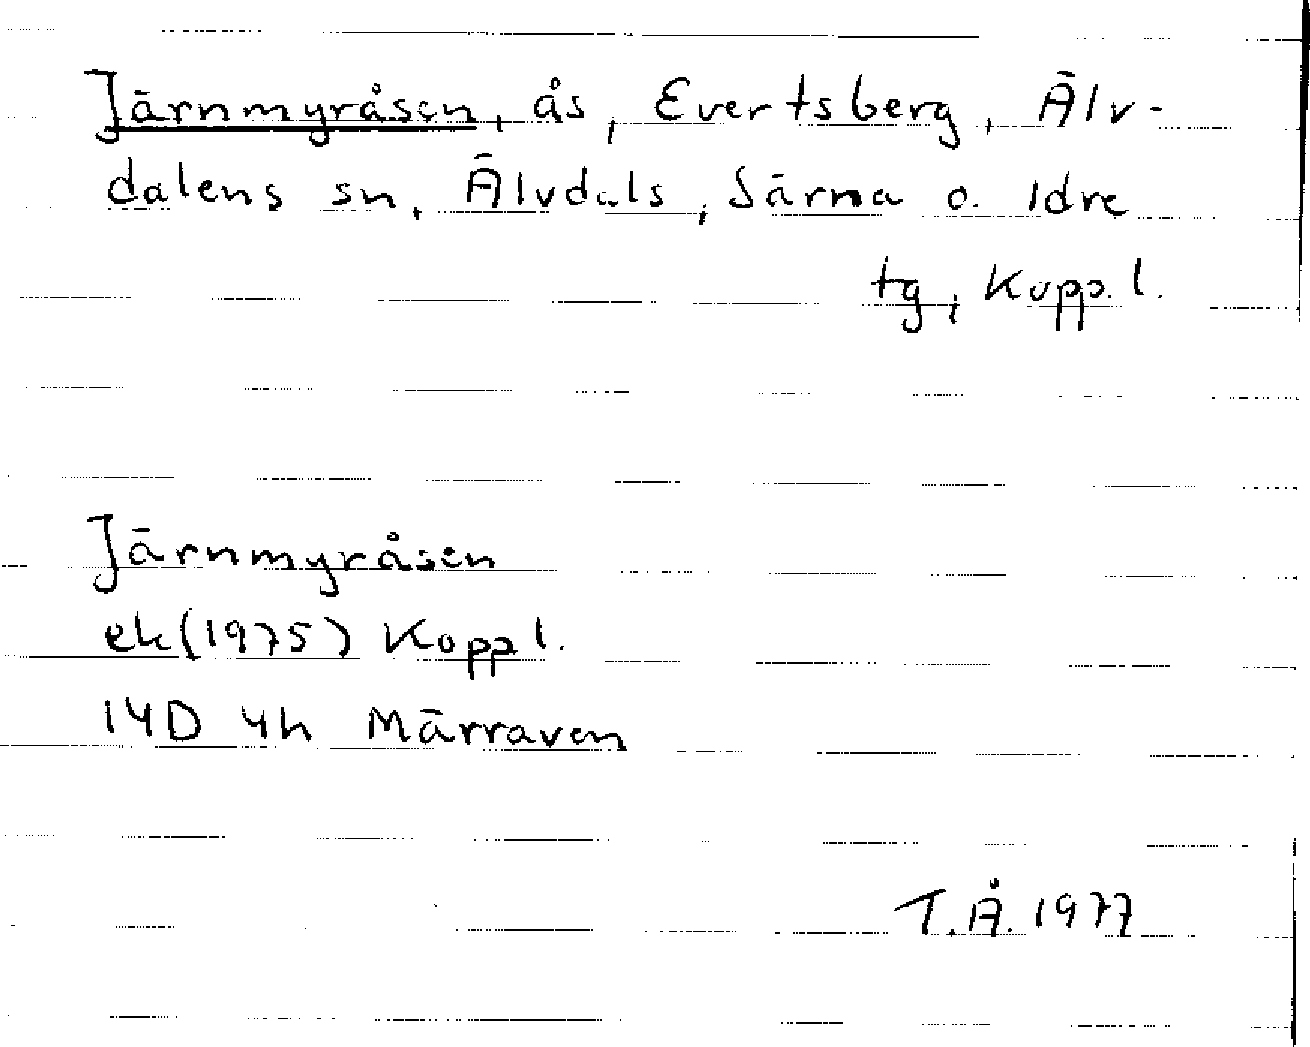 Järnmyråsen, ås, Evertsberg, Älv-
dalens sn, Älvdals, Särna o. Idre
tg, Kopp. l.
Järnmyråsen
ek(1975) Kopp l.
14D 4h Märraven
T.Å. 1977